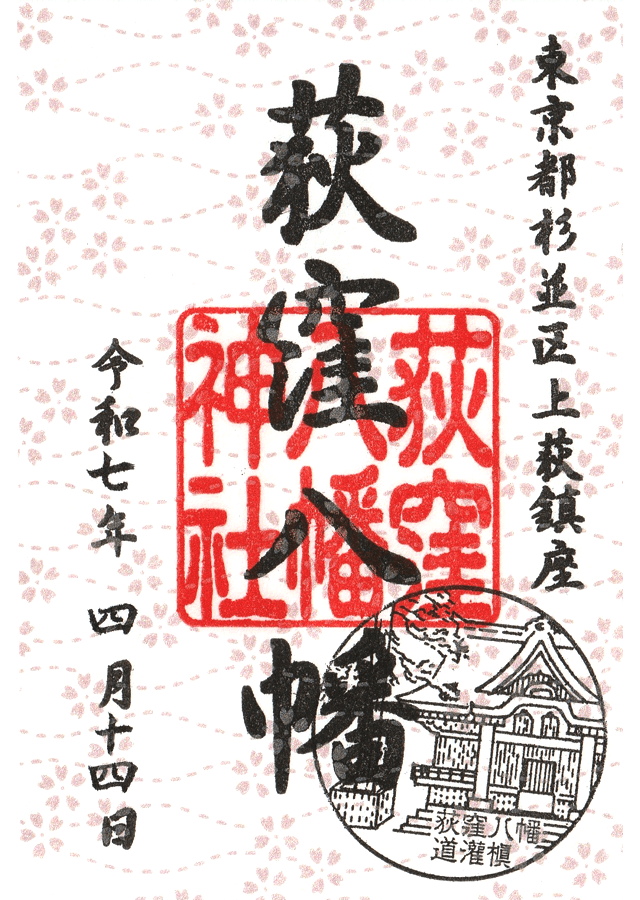 東京都杉並区上荻鎮座
荻窪八幡
荻窪
八幡
神社
令和七年 四月十四日
荻窪八幡
道灌槇